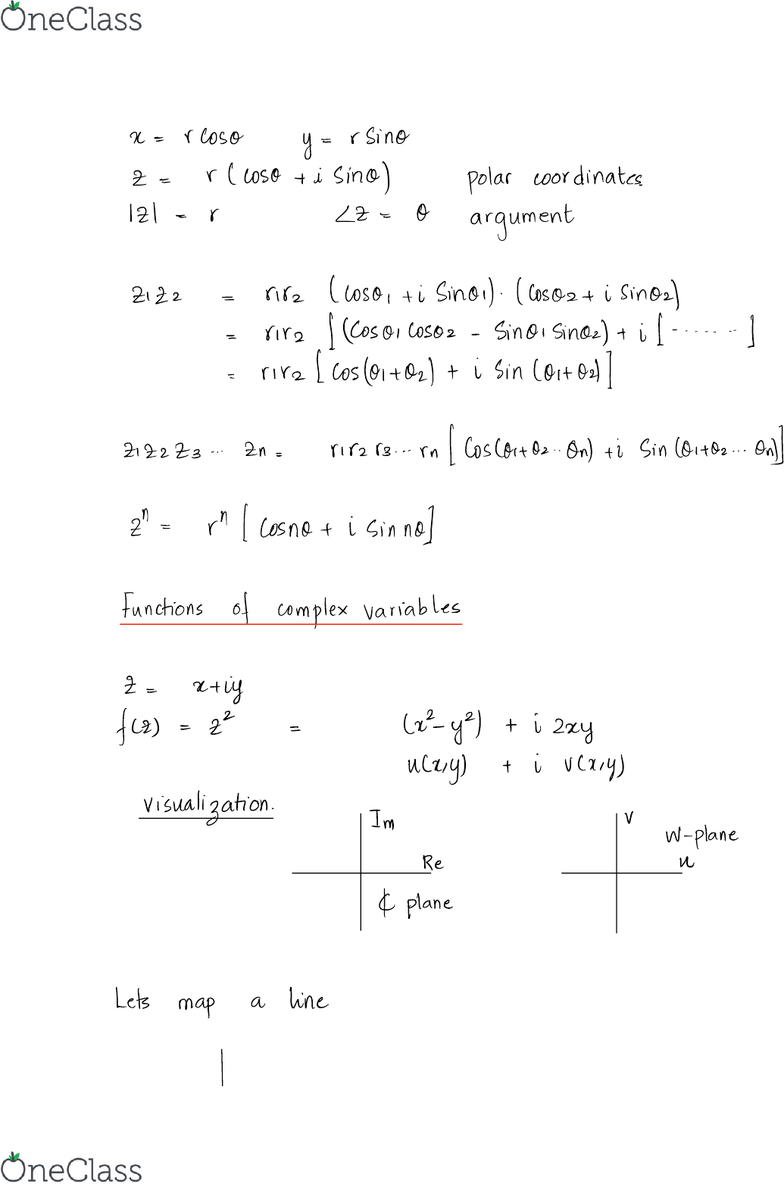 OneClass
x = r cosθ y = r sinθ
z = r (cosθ + i sinθ) polar coordinates
|z| = r ∠z = θ argument
z1z2 = r1r2 (cosθ1 + i sinθ1) · (cosθ2 + i sinθ2)
= r1r2 [(cosθ1 cosθ2 - sinθ1 sinθ2) + i [------]
= r1r2 [cos(θ1+θ2) + i sin (θ1+θ2)]
z1z2z3... zn = r1r2r3... rn [cos(θ1+θ2..θn) + i sin (θ1+θ2... θn)]
zⁿ = rⁿ [cosnθ + i sin nθ]
Functions of complex variables
z = x+iy
f(z) = z² = (x²-y²) + i 2xy
u(x,y) + i v(x,y)
visualization.
Im V
W-plane
Re u
ℂ plane
Lets map a line
OneClass